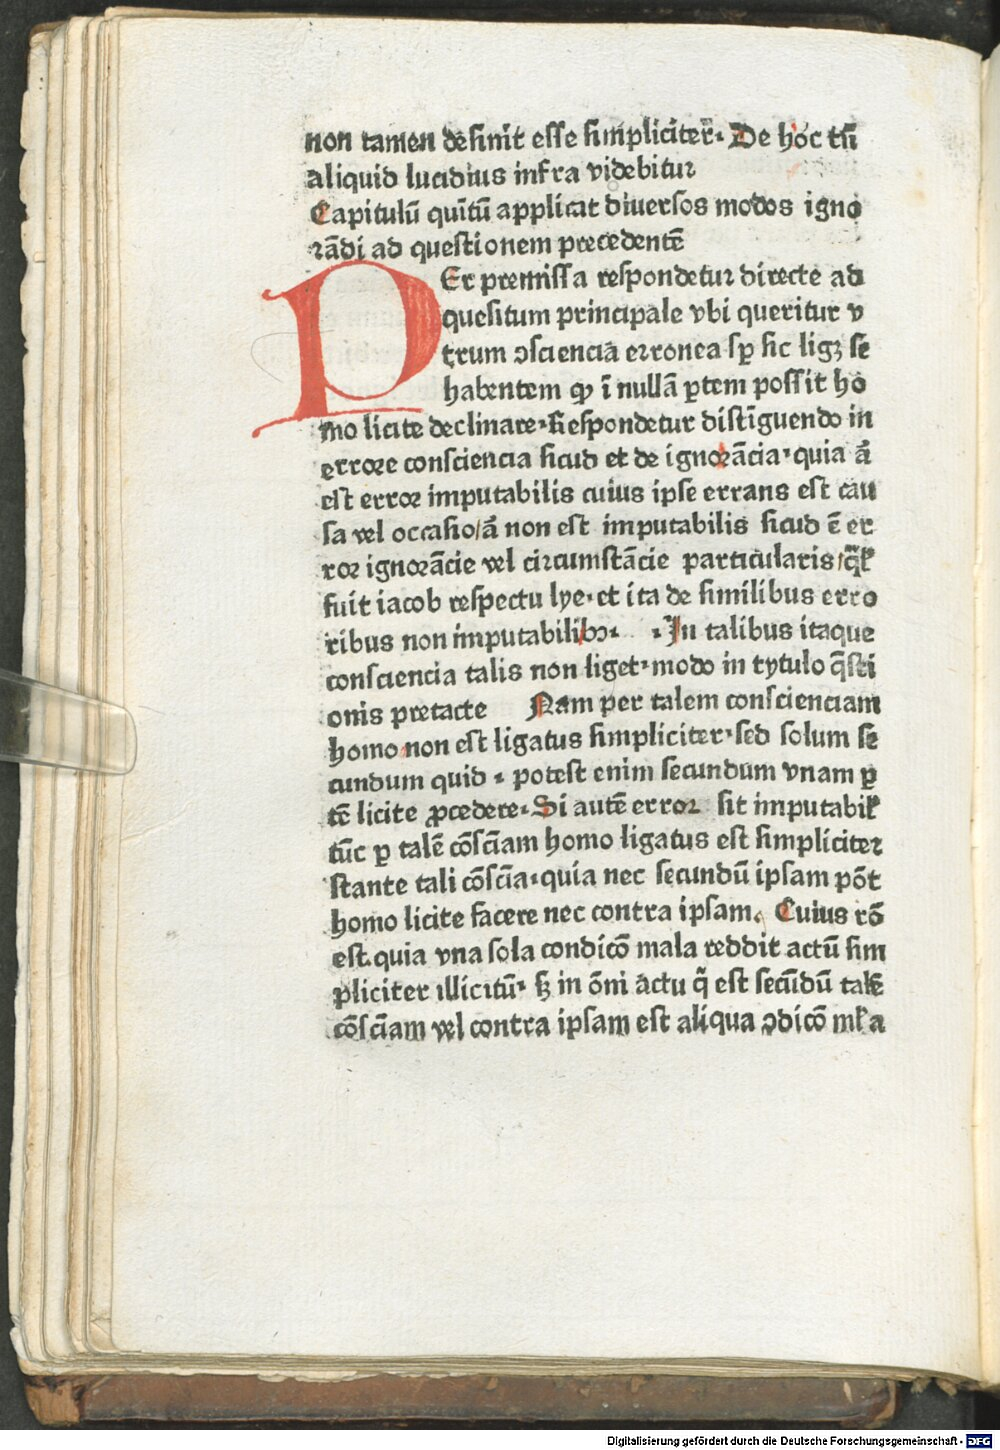 non tamen desinit esse simpliciter. De hoc tñ
aliquid lucidius infra videbitur
Capitulū quītū applicat diuersos modos igno
rādi ad questionem precedentē
PEr premissa respondetur directe ad
quesitum principale vbi queritur v
trum ↄsciencia erronea sꝑ sic ligꝫ se
habentem ꝙ ī nullā ꝑtem possit ho
mo licite declinare. Respondetur distīguendo in
errore consciencia sicud et de ignorācia. quia ā
est error imputabilis cuius ipse errans est cau
sa vel occasio/ā non est imputabilis sicud ē er
ror ignorācie vel circumstācie particularis/q̄lꝭ
fuit iacob respectu lye. et ita de similibus erro
ribus non imputabilibꝫ. .In talibus itaque
consciencia talis non liget. modo in tytulo q̄sti
onis pretacte Nam per talem conscienciam
homo non est ligatus simpliciter. sed solum se
cundum quid . potest enim secundum vnam ꝑ
tē licite ꝓcedere. Si autē error sit imputabilꝭ
tūc ꝑ talē cōsciam homo ligatus est simpliciter
stante tali cōscia. quia nec secundū ipsam pōt
homo licite facere nec contra ipsam. Cuius rō
est. quia vna sola condicō mala reddit actū sim
pliciter illicitū. sꝫ in ōni actu q̄ est secūdū talē
cōsciam vel contra ipsam est aliqua ↄdicō mła
Digitalisierung gefördert durch die Deutsche Forschungsgemeinschaft - DFG